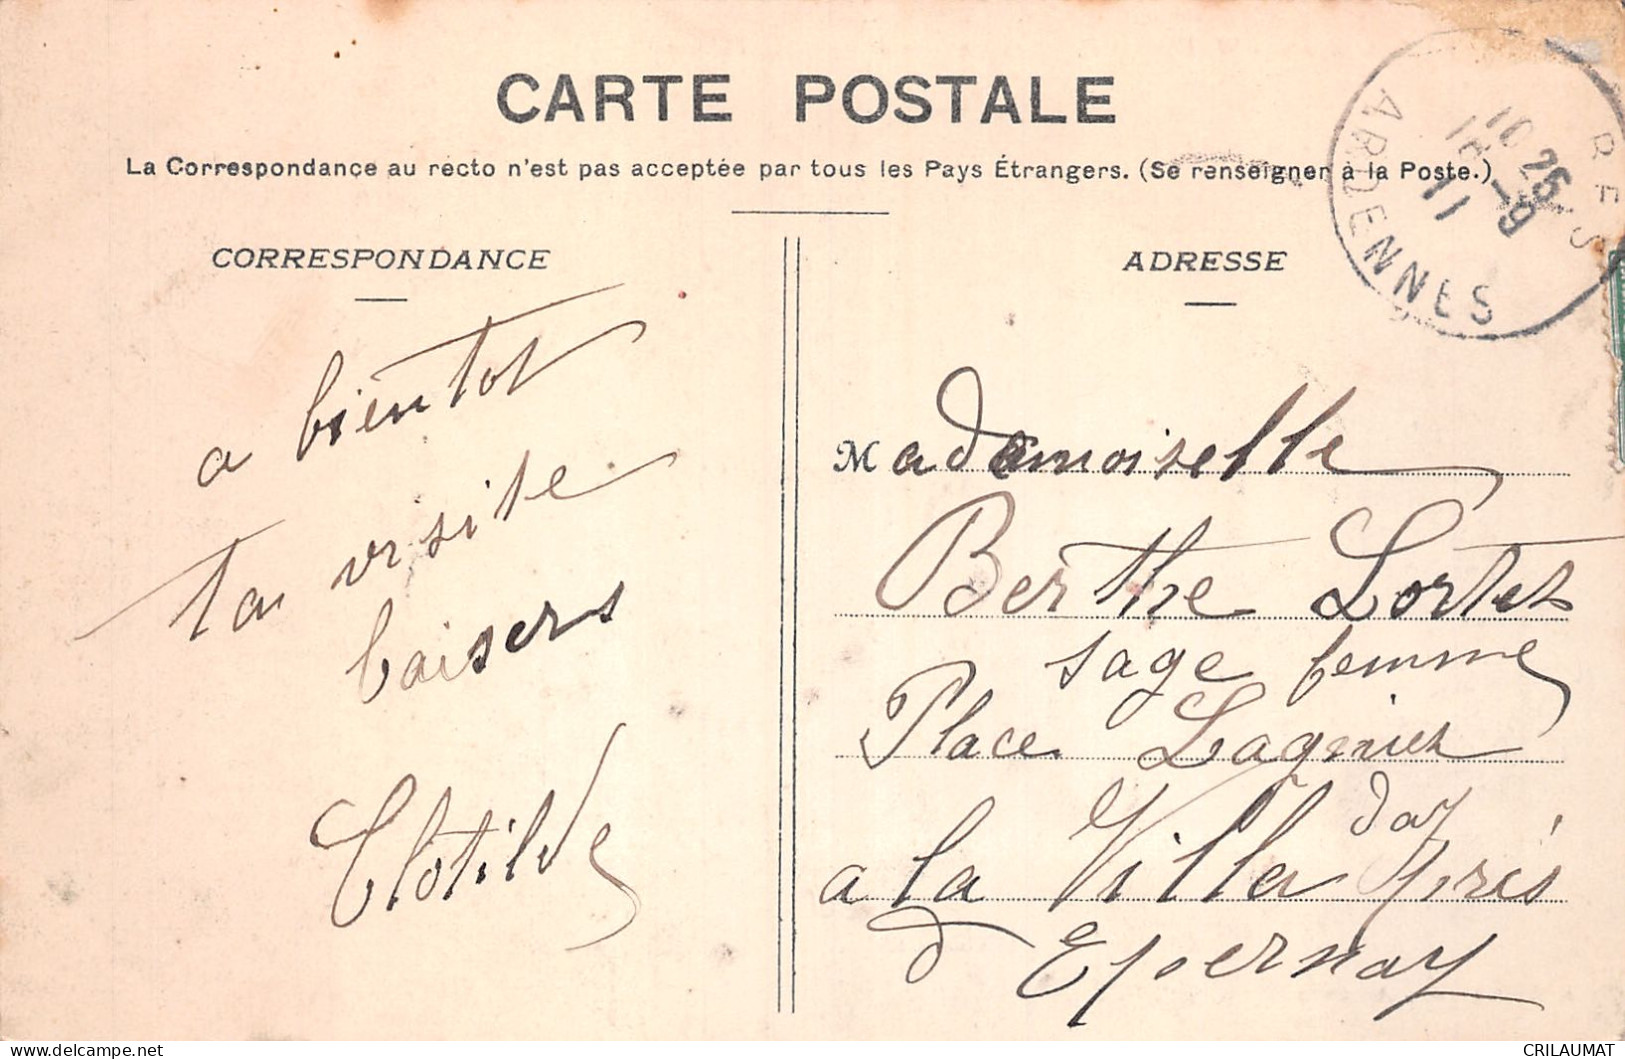 CARTE POSTALE
La Correspondance au recto n'est pas acceptée par tous les Pays Étrangers. (Se renseigner à la Poste.)
CORRESPONDANCE
a bientot
ta visite
baisers
Clotilde
ADRESSE
Mademoiselle
Berthe Lortet
sage femme
Place
a la Villa d'ay prés
d'Epernay
ARDENNES
10 25
16 -9
11
CRILAUMAT